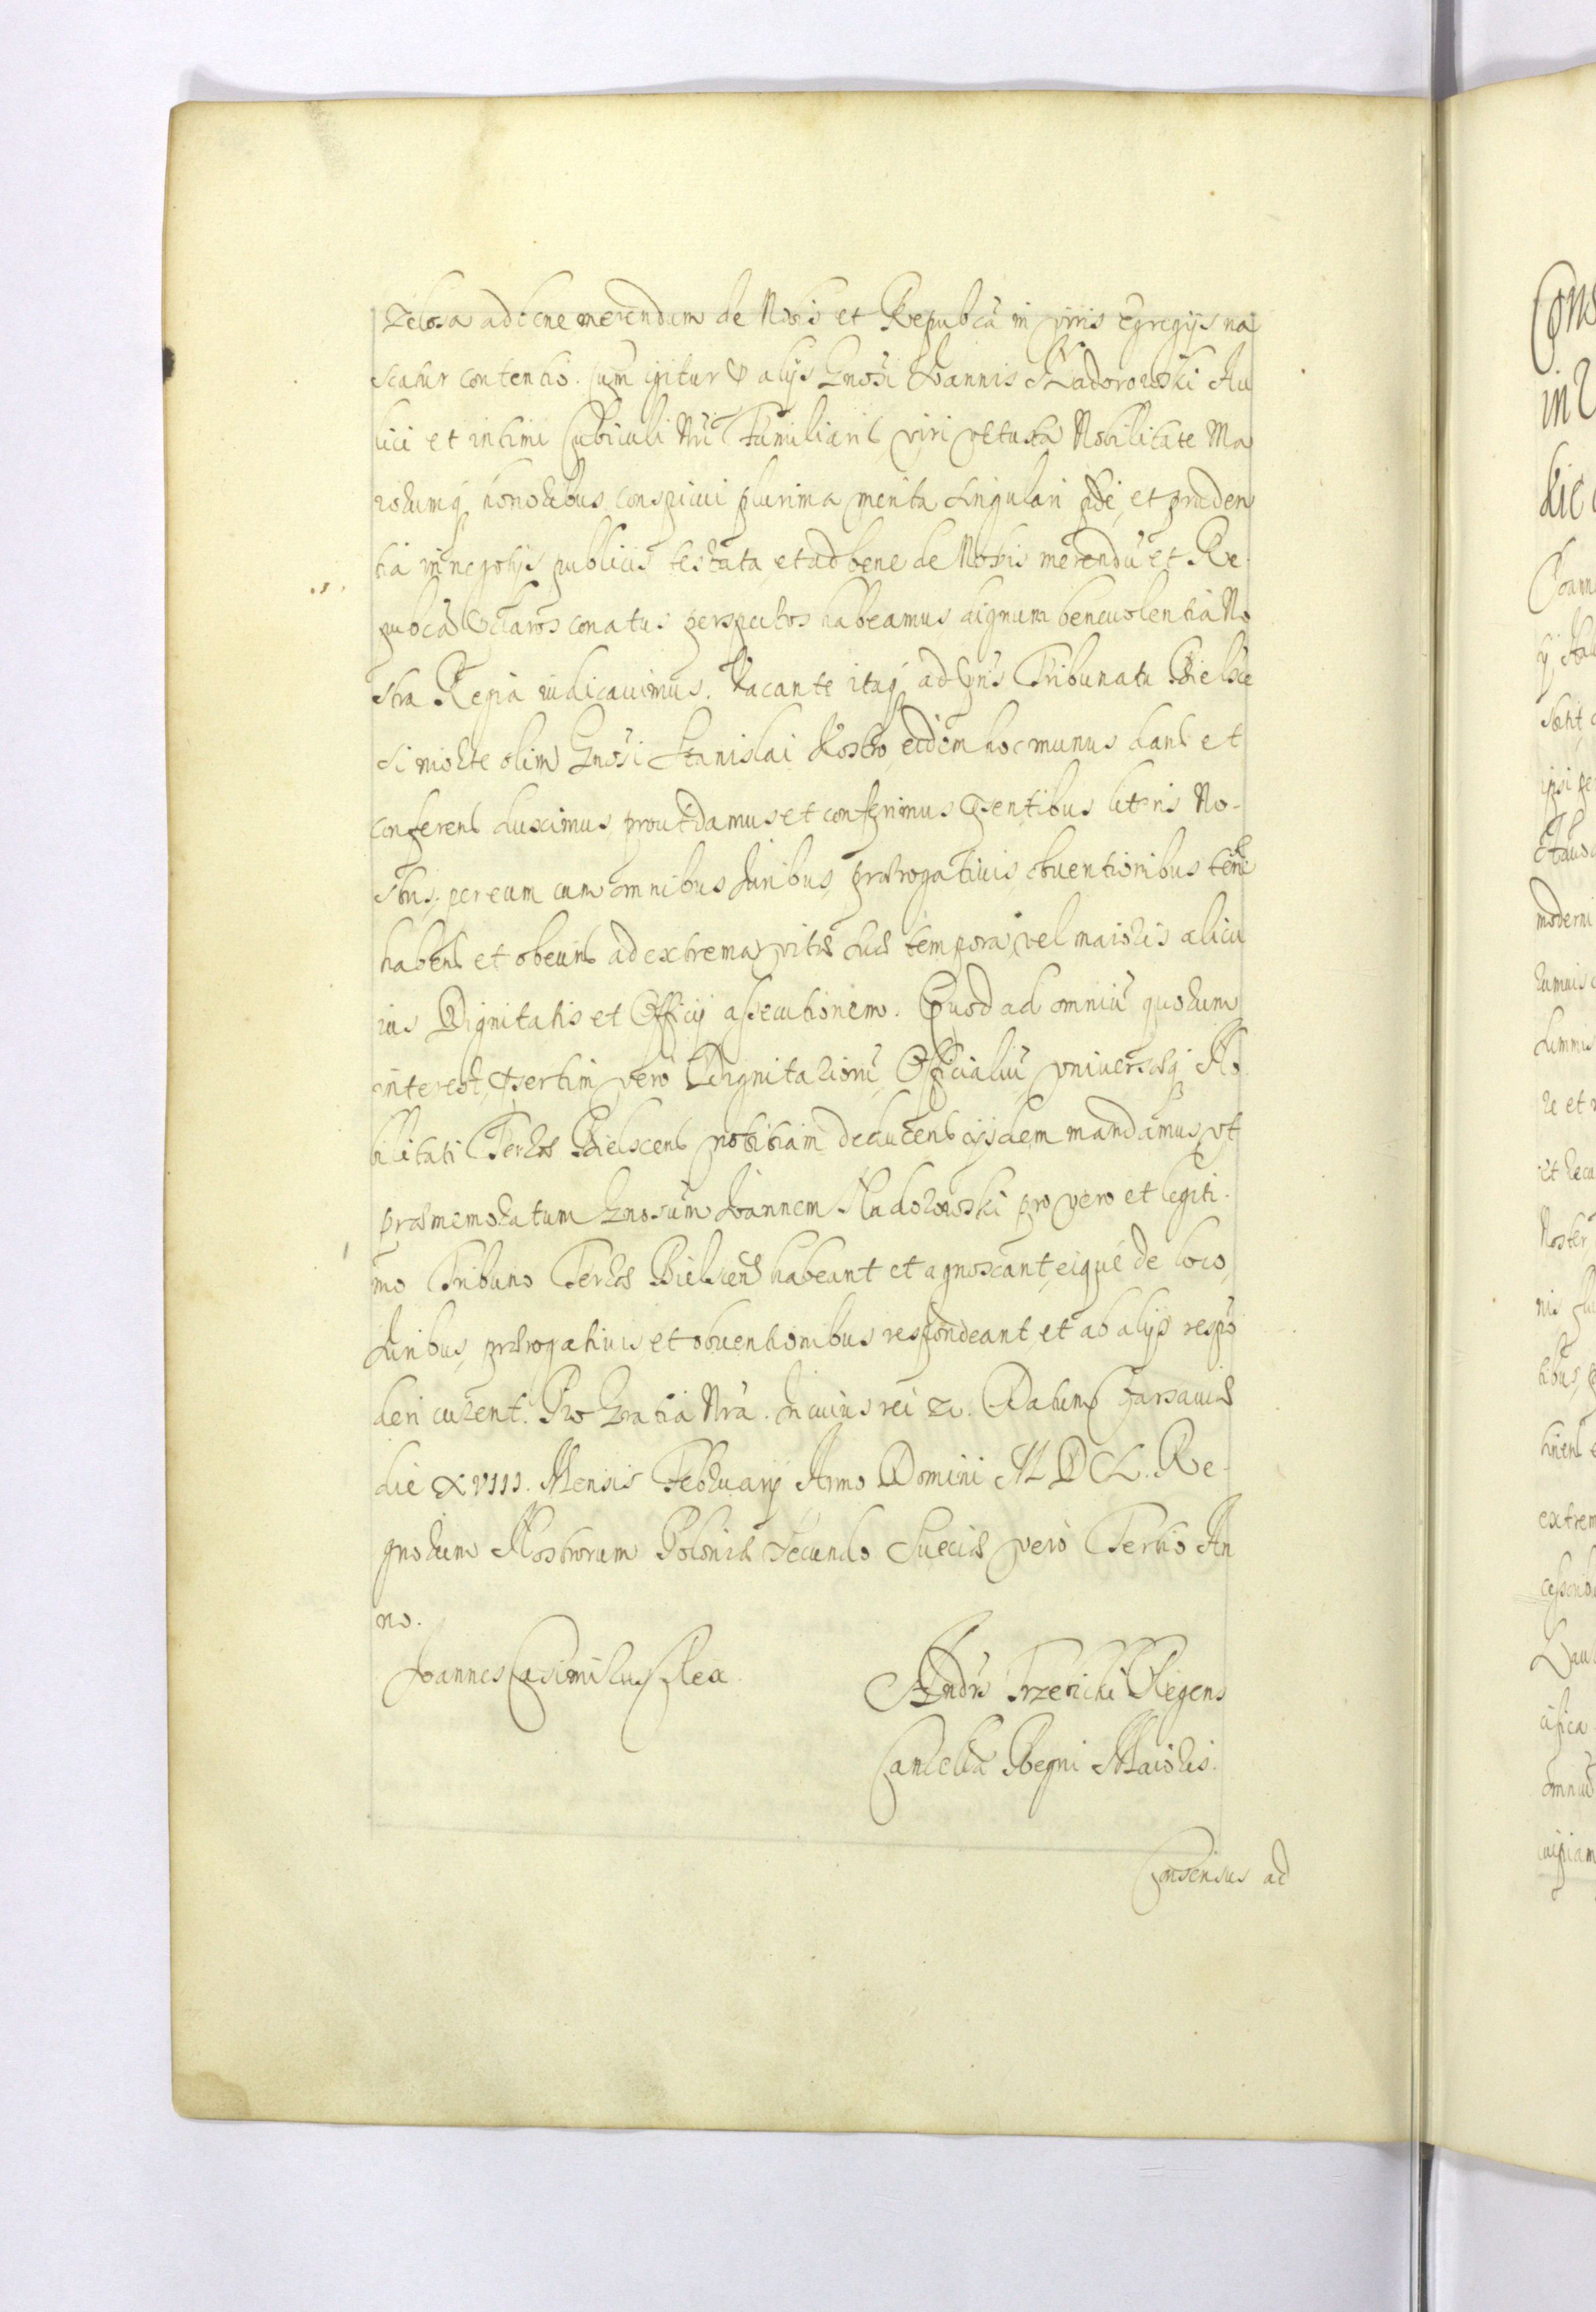 zelosa ad bene merendum de Nobis et Republcã in viris egregijs na
scatur contentio. Cum igitur & alijs Gnosi Joannis Nadorowski Au
lici et intimi Cubiculi Nri Familiaris viri vetusta Nobilitate Ma
iorumq honoribus conspicui plurima merita singulari fide, et pruden
tia in negotijs publicis testata, et ad bene de Nobis merendũ et Re
publcã praeclaros conatus perspectos habeamus dignum beneuolentia No
stra Regia iudicauimus. Vacante itaq ad praens Tribunatu Bielsce
si morte olim Gnosi Stanislai Kostro, eidem hoc munus dand et
conferend duximus, prout damus et conferimus praesentibus literis No-
stris, per eum cum omnibus Juribus, praerogatiuis, obuentionibus tene
habend et obeund ad extrema vitae suae tempora, vel maioris alicu
ius Dignitatis et Officij assecutionem. Quod ad omniũ quorum
interest, praesertim vero Dignitariorũ, Officialiũ, vniuersaeq No
bilitati Terrae Bielscens notitiam deducend ijsdem mandamus, vt
praememoratum Gnosum Joannem Nadorowski pro vero et legiti-
mo Tribuno Terrae Bielscens habeant et agnoscant, eique de loco,
Juribus, praerogatiuis, et obuentionibus respondeant, et ab alijs respõ
deri curent. Pro Gratia Nrã. In cuius rei &. Datum Varsauiae
die XVIII. Mensis Februarij Anno Domini MDCL. Re-
gnorum Nostrorum Poloniae Secundo Sueciae vero Tertio An
no.
Joannes Casimirus Rex.
Andrs Trzebicki Regens
Cancellã Regni Maioris.
Consensus ad